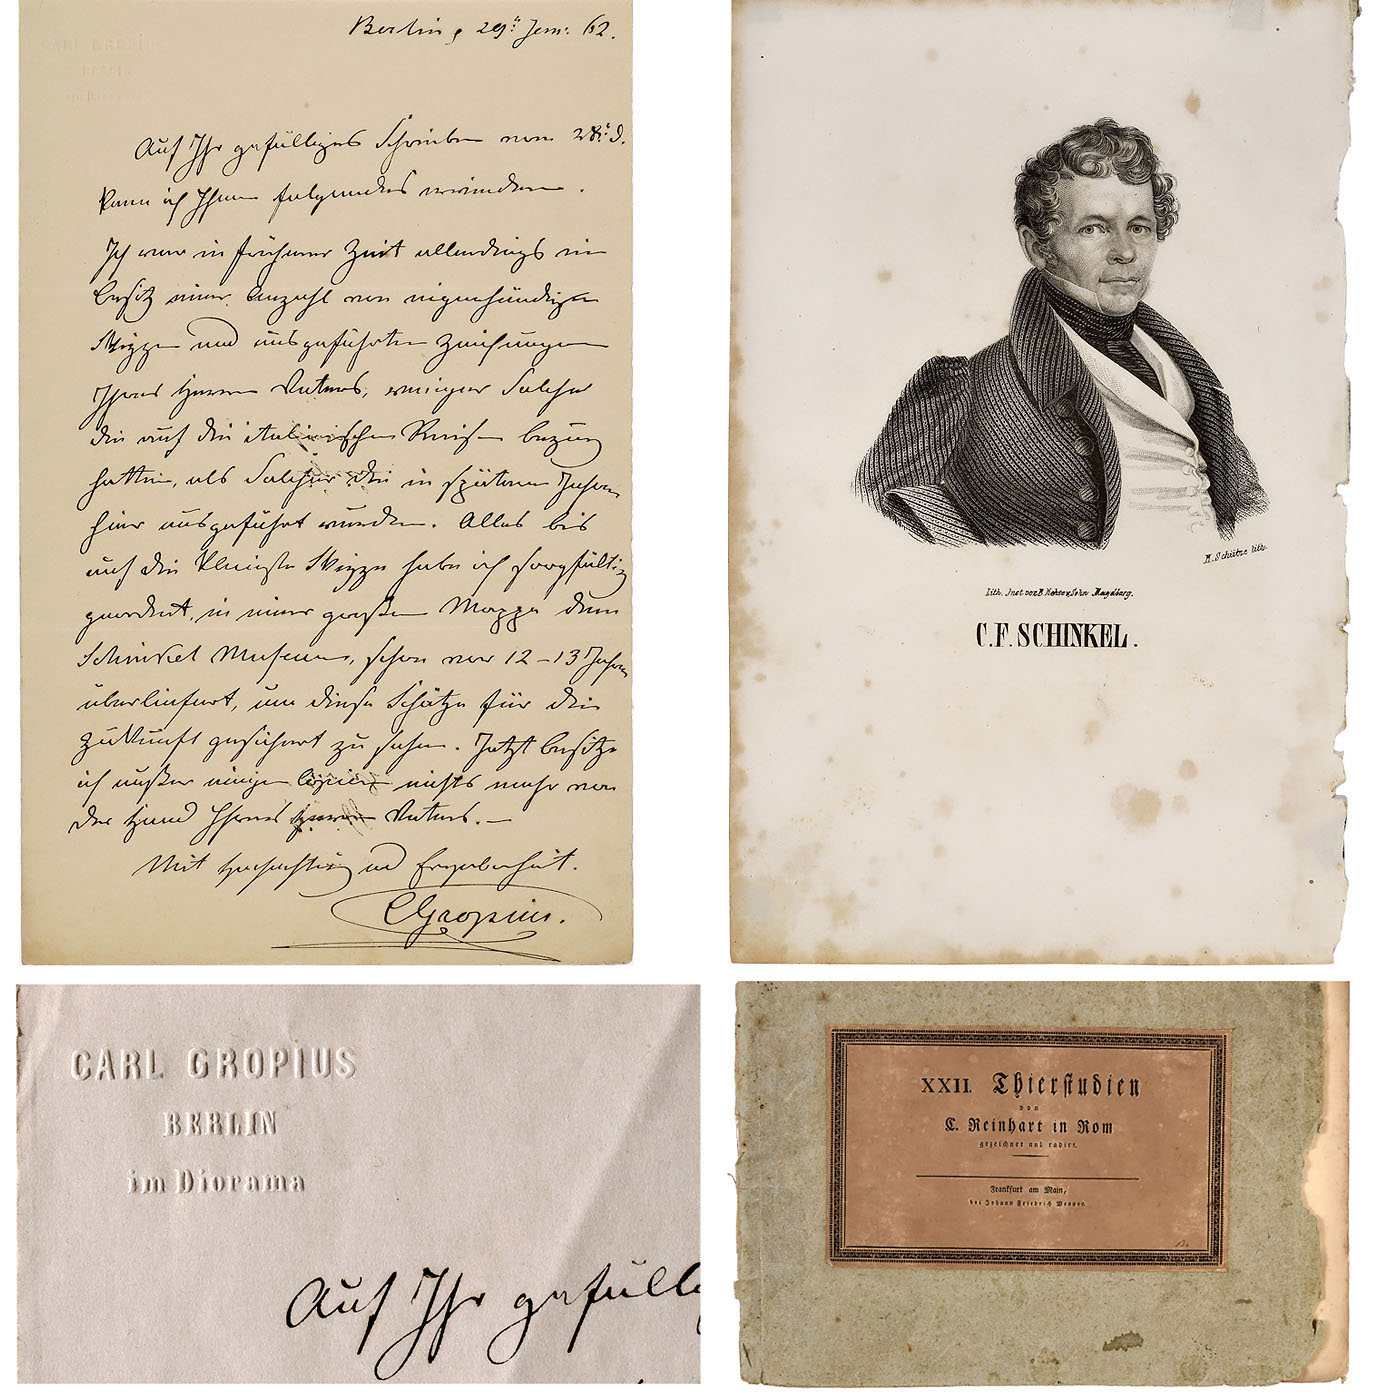 Berlin, 29t Jan: 62.
Auf Ihr gefälliges Schreiben vom 28t d.
kann ich Ihnen folgendes erwiedern.
Ich war in früherer Zeit allerdings im
Besitz einer Anzahl von eigenhändigen
Skizzen und ausgeführten Zeichnungen
Ihres Herrn Vaters, weniger Solche
die auf die italienischen Reisen bezug
hatten, als Solcher die in spätern Jahren
hier ausgeführt wurden. Alles bis
auf die kleinste Skizze habe ich sorgfältig
geordnet, in einer großen Mappe dem
Schinkel Museum, schon vor 12-13 Jahren
überliefert, um diese Schätze für die
Zukunft gesichert zu sehen. Jetzt besitze
ich außer einigen Copieen nichts mehr von
der Hand Ihres Herrn Vaters.-
Mit Hochachtung und Ergebenheit.
CGropius.
H. Schütze lith.
Lith. Inst. von Sohn Magdeburg.
C. F. SCHINKEL.
CARL GROPIUS
BERLIN
im Diorama
Auf Ihr gefäll
XXII. Thierstudien
von
C. Reinhart in Rom
gezeichnet und radirt.
Frankfurt am Main,
bei Johann Friedrich Wenner.